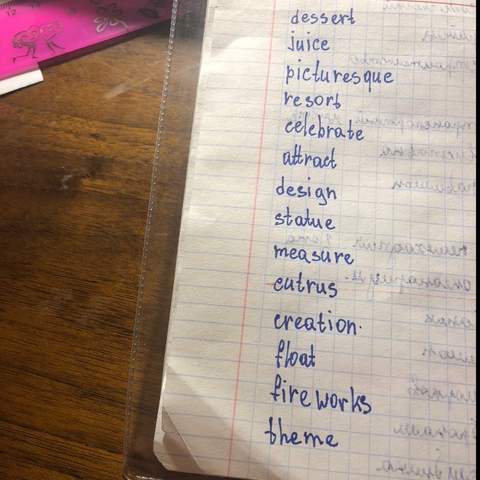 dessert
juice
picturesque
resort
celebrate
attract
design
statue
measure
cutrus
creation.
float
fireworks
theme